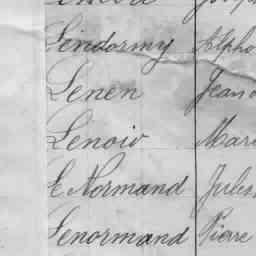 Lindormy Alpho
Lenen Jean
Lenoir Mari
Le Normand Jules
Lenormand Pierre